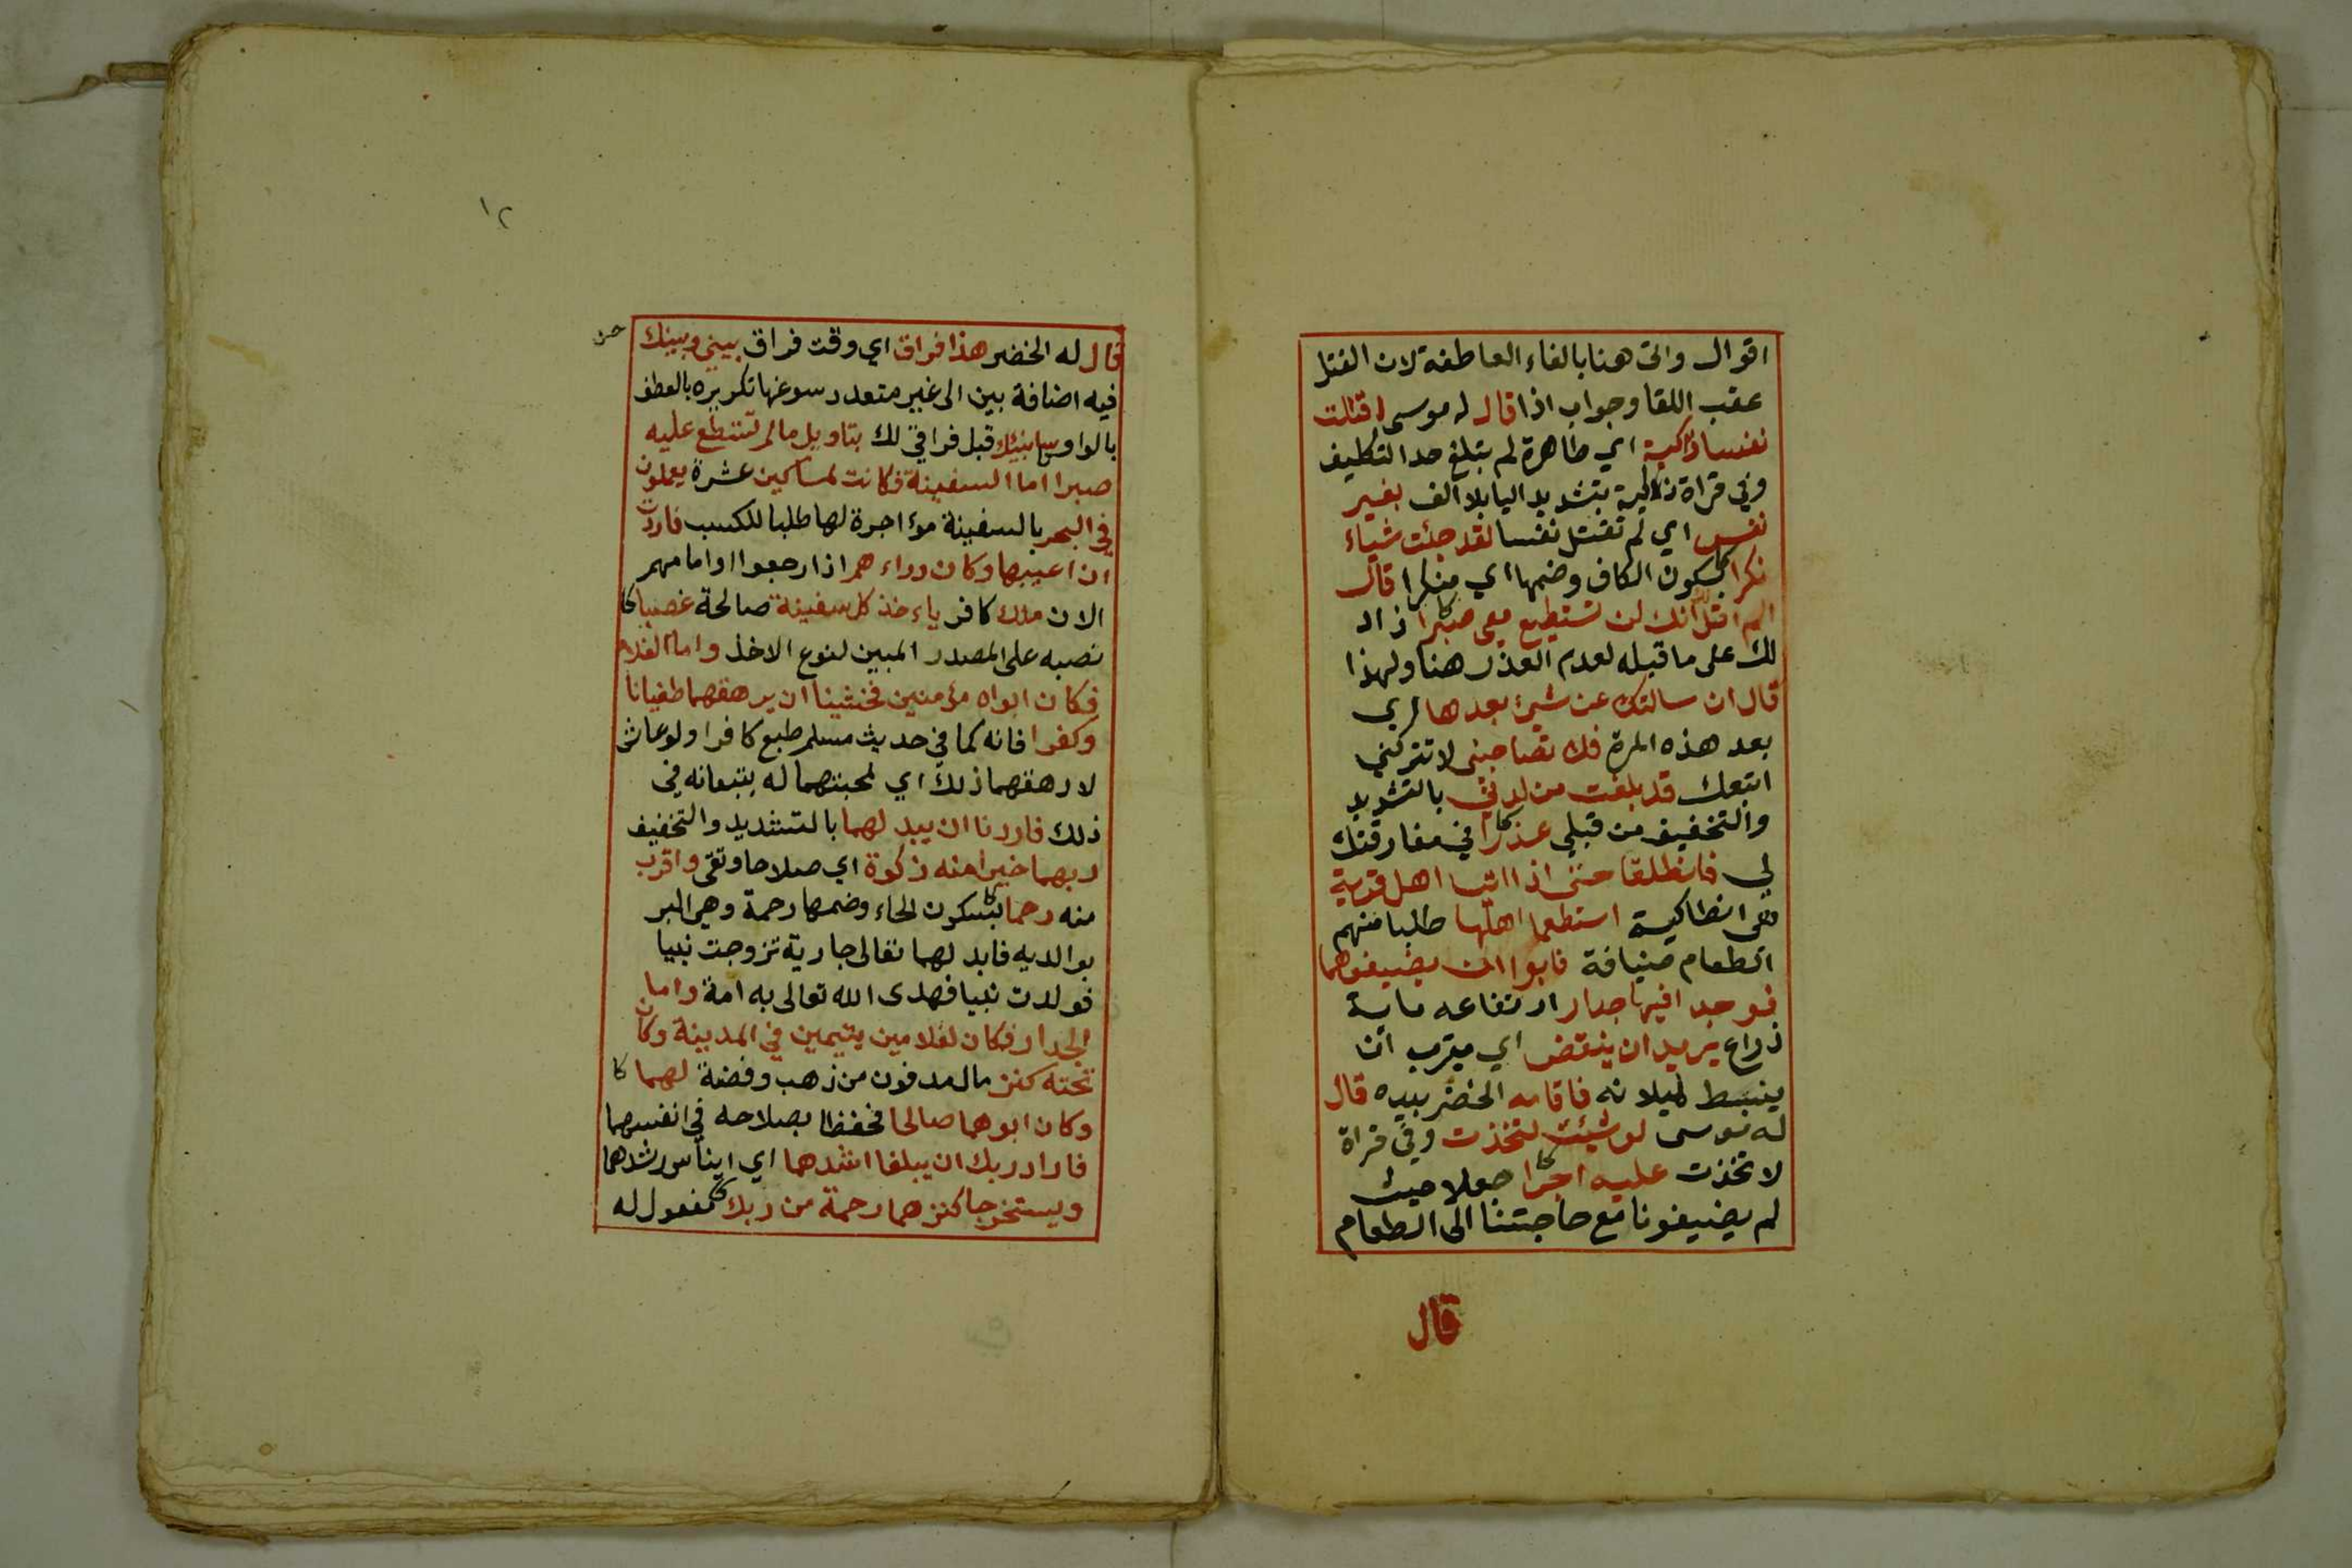 اقوال واتى هنا بالفاء العاطفة لان القتل
عقب اللقا وجواب اذا قال له موسى اقتلت
نفسا زاكية اي طاهرة لم يبلغ حد التكليف
وفي قراة زكية بتشديد اليا بلا الف بغير
نفس اي لم تقتل نفسا لقد جئت شياء
نكرا بسكون الكاف وضمها اي منكرا قال
الم اقل انك لن تستطيع معي صبرا زاد
لك على ما قبله لعدم العذر هنا ولهذا
قال ان سالتك عن شيئ بعدها اي
بعد هذه المرة فلا تصاحبني لا تتركني
اتبعك قد بلغت من لدني بالتشديد
والتخفيف من قبلي عذرا في مفارقتك
لي فانطلقا حتى اذا اتيا اهل قرية
هي انطاكية استطعما اهلها طلبا منهم
الطعام ضيافة فابوا ان يضيفوهما
فوجدا فيها جدار ارتفاعه ماية
ذراع يريد ان ينقض اي يقرب ان
يسقط لميلانه فاقامه الخضر بيده قال
له موسى لو شئت لتخذت وفي قراة
لاتخذت عليه اجرا جعلا حيث
لم يضيفونا مع حاجتنا الى الطعام
قال
١٢
قال له الخضر هذا فراق اي وقت فراق بيني وبينك
فيه اضافة بين الى غير متعدد سوغها تكريره بالعطف
بالواو سانبئك قبل فراقي لك بتاويل ما لم تستطع عليه
صبرا اما السفينة فكانت لمساكين عشرة يعملون
في البحر بالسفينة مؤاجرة لها طلبا للكسب فاردت
ان اعيبها وكان وراءهم اذا رجعوا او امامهم
الان ملك كافر ياءخذ كل سفينة صالحة غصبا كا
نصبه على المصدر المبين لنوع الاخذ واما الغلام
فكان ابواه مؤمنين فخشينا ان يرهقهما طغيانا
وكفرا فانه كما في حديث مسلم طبع كافرا ولو عاش
لارهقهما ذلك اي لمحبتهما له يتبعانه في
ذلك فاردنا ان يبدلهما بالتشديد والتخفيف
ربهما خيرا منه زكوة اي صلاحا وتقى واقرب
منه رحما بسكون الحاء وضمها رحمة وهي البر
بوالديه فابدلهما تعالى جارية تزوجت نبيا
فولدت نبيا فهدى الله تعالى به امة واما
الجدار فكان لغلامين يتيمين في المدينة وكان
تحته كنز مال مدفون من ذهب وفضة لهما كا
وكان ابوهما صالحا فحفظا بصلاحه في انفسهما
فاراد ربك ان يبلغا اشدهما اي ايناس رشدهما
ويستخرجا كنزهما رحمة من ربك كا مفعول له